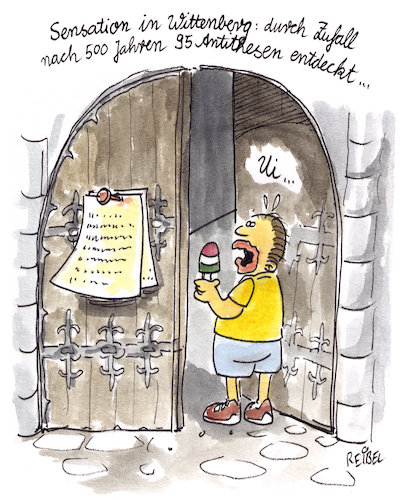 Sensation in Wittenberg: durch Zufall
nach 500 Jahren 95 Antithesen entdeckt...
Ui...
REIBEL